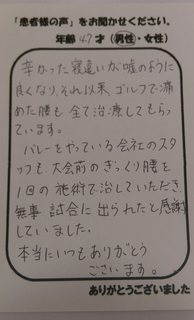 「患者様の声」をお聞かせください。
年齢 47 才 (男性・女性)
辛かった寝違いが嘘のように
良くなり、それ以来、ゴルフで痛
めた腰も 全て治療してもら
っています。
バレーをやっている会社のスタ
ッフも大会前のぎっくり腰を
1回の施術で治していただき、
無事 試合に出られたと感謝
していました。
本当にいつもありがとう
ございます。
ありがとうございました